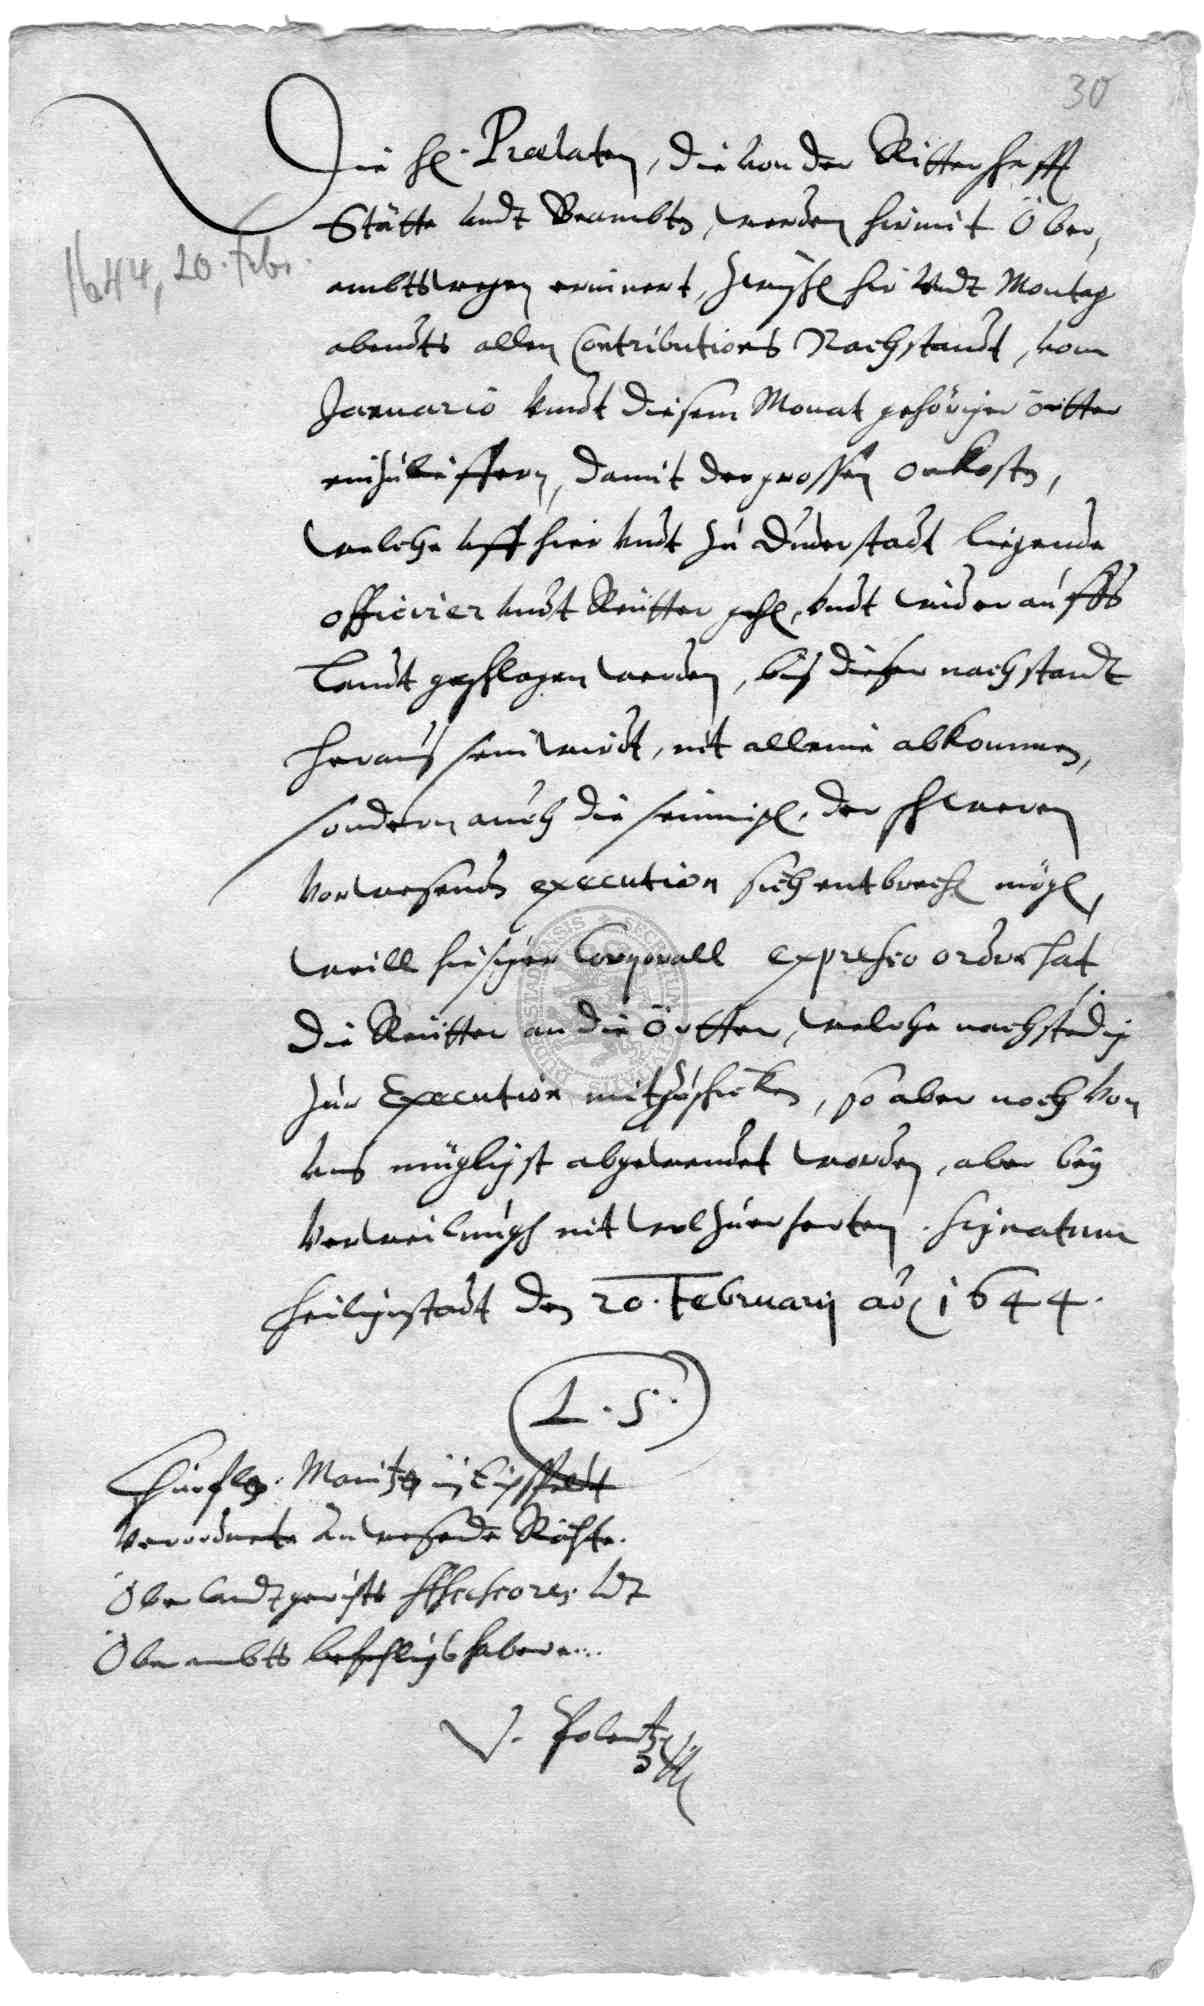 30
Die H. Praelaten, die von der Ritterschafft
Stätte undt Beambten, werden hirmit Ober,
ambtswegen erinnert, zwischen hir undt Montag
abendts allen Contributions Nachstandt, vom
Januario undt diesem Monat gehöriger örtter
einzulieffern, damit der grossen onkosten,
welche uff hier undt zu Duderstadt liegende
officirer undt Reutter gehen, undt wider auffs
Landt geschlagen werden, biß dieser nachstandt
heraus sein wirdt, nit alleine abkommen,
sondern auch die seumigen, der schweren
vorwesenden execution sich entbrechen mögen,
weill hiesiger Corporall expresse order hat
die Reutter an die Örtter, welche nachstendig
zur Execution mitzuschicken, so aber noch von
uns mügligst abgewendet worden, aber bey
verweilungh nit wol zuerharten. Signatum
Heiligenstadt den 20. Februarij ao 1644.
1644, 20. Febr.
L. S.
Churfl. Maintz. im Eichsfeldt
verordnete anwesende Räthe.
Oberlandtgerichts Assessores undt
Oberambts befehlighabere...
V. Polentz